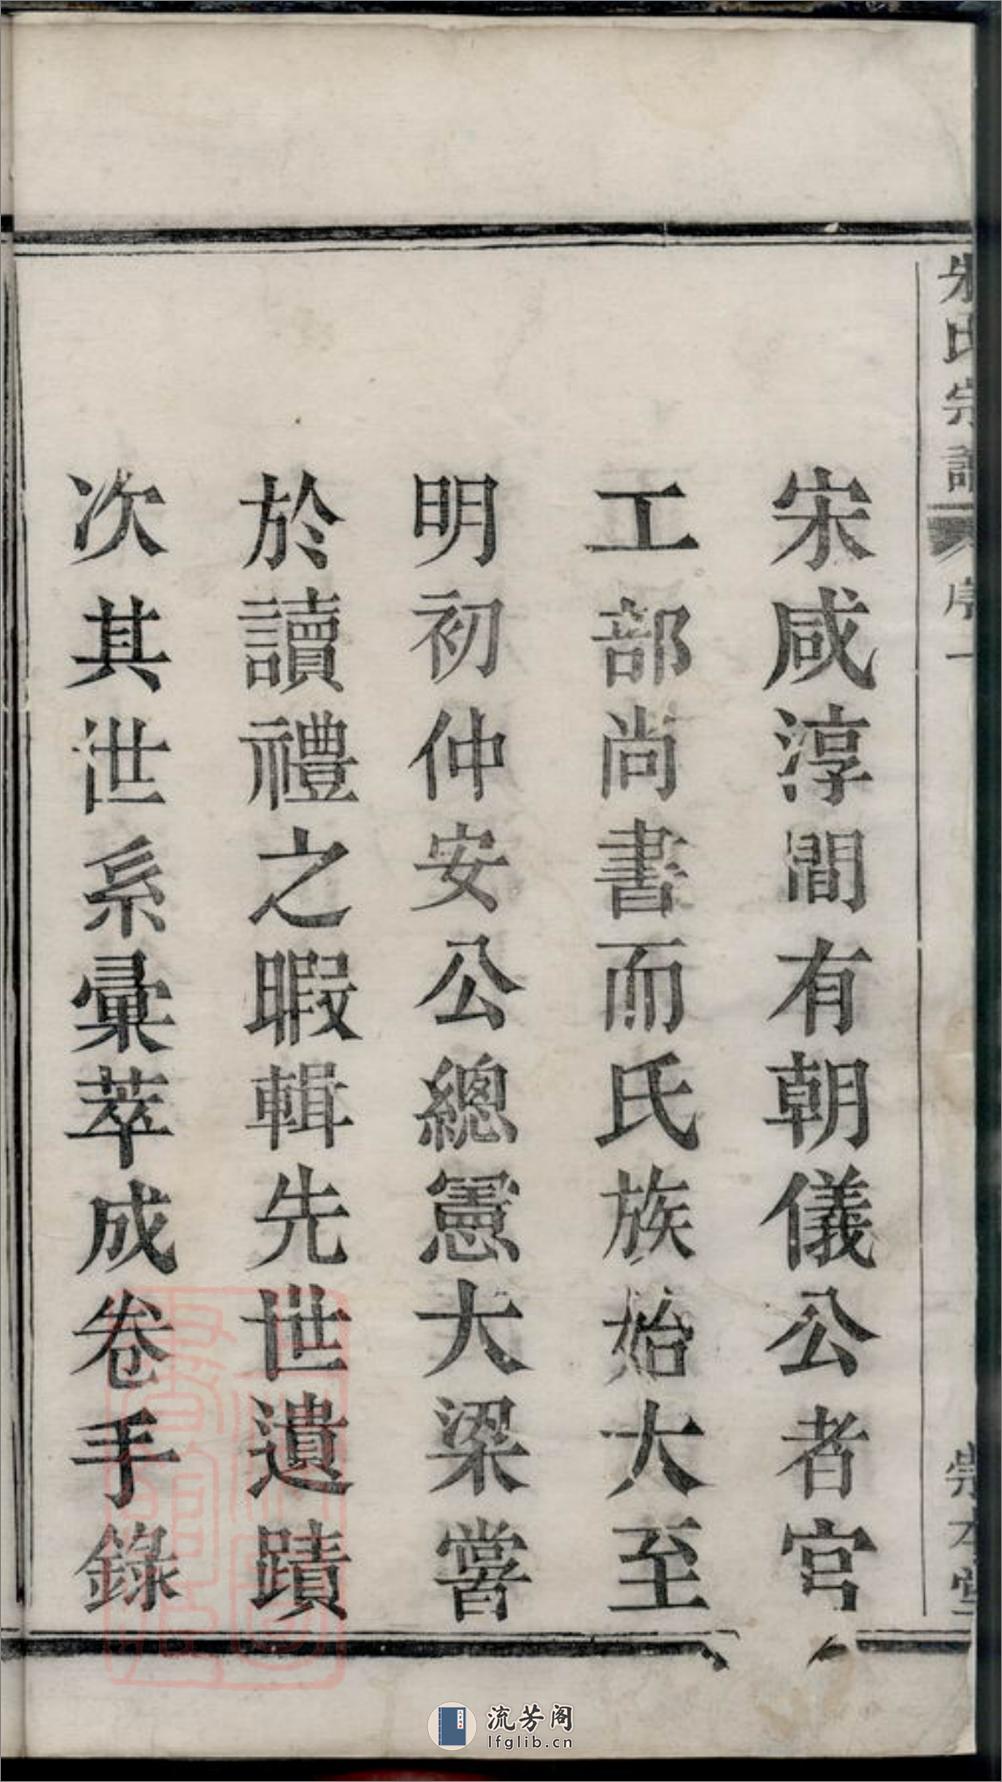 朱氏宗譜
序一
崇本堂
宋咸淳間有朝儀公者官
工部尚書而氏族始大至
明初仲安公總憲大梁嘗
於讀禮之暇輯先世遺蹟
次其世系彙萃成卷手錄
流芳阁
lfglib.cn